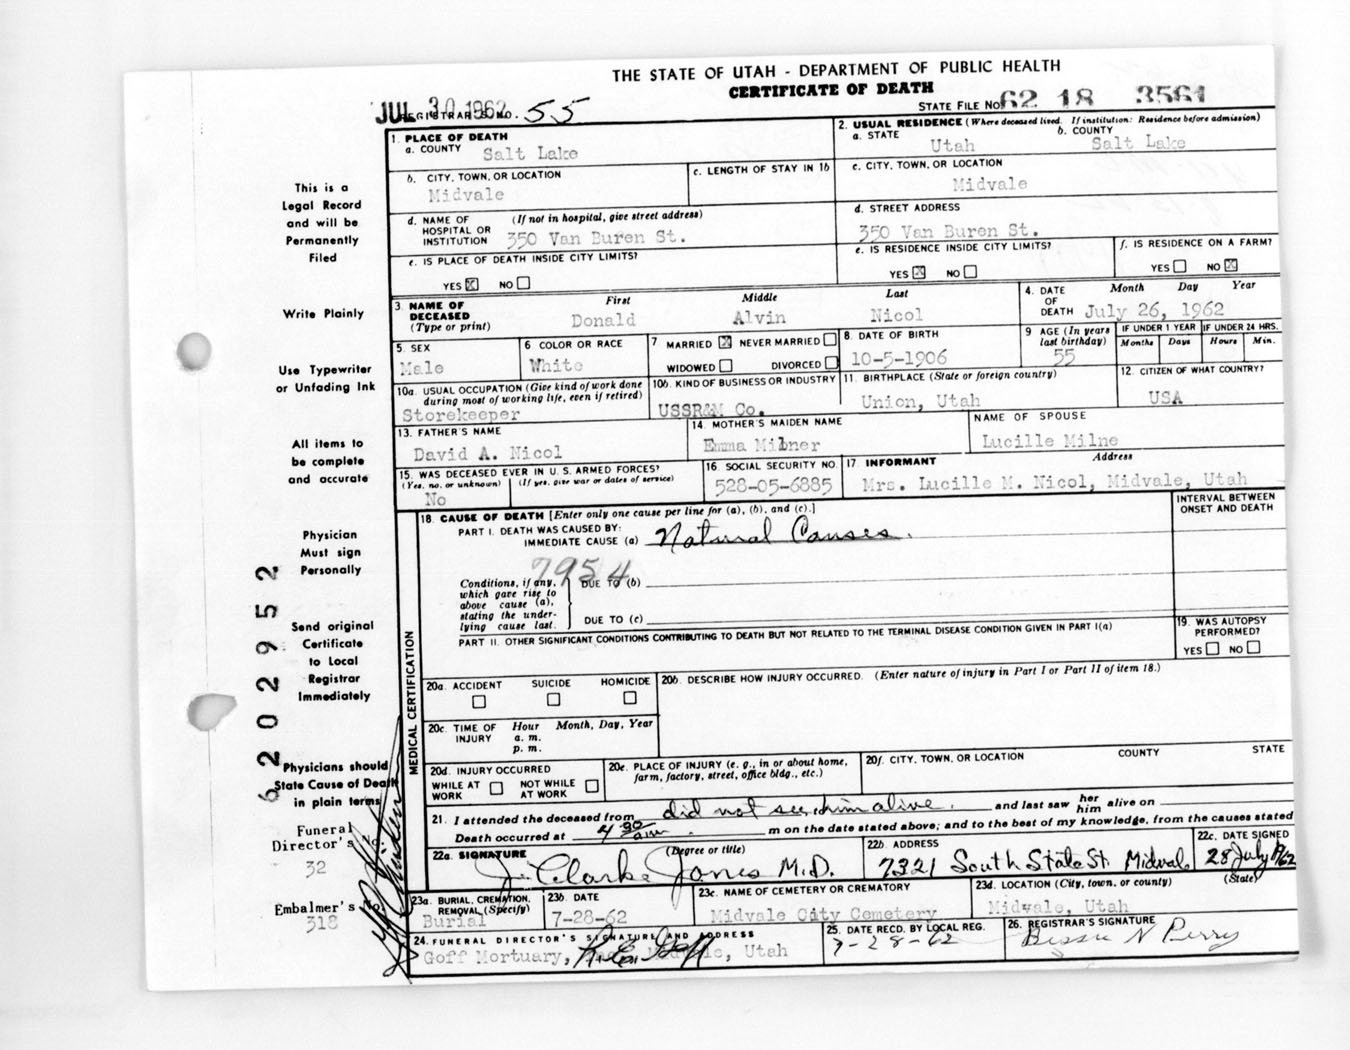 THE STATE OF UTAH - DEPARTMENT OF PUBLIC HEALTH
CERTIFICATE OF DEATH
JUL 30 1962
REGISTRAR'S NO. 55
STATE FILE NO. 62 18 3561
1. PLACE OF DEATH
a. COUNTY Salt Lake
2. USUAL RESIDENCE (Where deceased lived. If institution: Residence before admission)
a. STATE Utah b. COUNTY Salt Lake
b. CITY, TOWN, OR LOCATION Midvale
c. LENGTH OF STAY IN 1b
c. CITY, TOWN, OR LOCATION Midvale
d. NAME OF HOSPITAL OR INSTITUTION (If not in hospital, give street address) 350 Van Buren St.
d. STREET ADDRESS 350 Van Buren St.
e. IS PLACE OF DEATH INSIDE CITY LIMITS?
YES X NO
e. IS RESIDENCE INSIDE CITY LIMITS?
YES X NO
f. IS RESIDENCE ON A FARM?
YES NO X
3. NAME OF DECEASED (Type or print)
First Middle Last
Donald Alvin Nicol
4. DATE OF DEATH Month Day Year
July 26, 1962
5. SEX Male
6. COLOR OR RACE White
7 MARRIED X NEVER MARRIED
WIDOWED DIVORCED
8. DATE OF BIRTH 10-5-1906
9 AGE (In years last birthday) 55
IF UNDER 1 YEAR Months Days
IF UNDER 24 HRS. Hours Min.
10a. USUAL OCCUPATION (Give kind of work done during most of working life, even if retired)
Storekeeper
10b. KIND OF BUSINESS OR INDUSTRY
USSR&M Co.
11. BIRTHPLACE (State or foreign country)
Union, Utah
12. CITIZEN OF WHAT COUNTRY?
USA
13. FATHER'S NAME
David A. Nicol
14. MOTHER'S MAIDEN NAME
Emma Milner
NAME OF SPOUSE
Lucille Milne
15. WAS DECEASED EVER IN U.S. ARMED FORCES?
(Yes, no, or unknown) (If yes, give war or dates of service)
No
16. SOCIAL SECURITY NO.
528-05-6885
17. INFORMANT Address
Mrs. Lucille M. Nicol, Midvale, Utah
MEDICAL CERTIFICATION
18. CAUSE OF DEATH [Enter only one cause per line for (a), (b), and (c).]
INTERVAL BETWEEN ONSET AND DEATH
PART I. DEATH WAS CAUSED BY:
IMMEDIATE CAUSE (a) Natural Causes.
7954
Conditions, if any, which gave rise to above cause (a), stating the underlying cause last.
DUE TO (b)
DUE TO (c)
PART II. OTHER SIGNIFICANT CONDITIONS CONTRIBUTING TO DEATH BUT NOT RELATED TO THE TERMINAL DISEASE CONDITION GIVEN IN PART I(a)
19. WAS AUTOPSY PERFORMED?
YES NO
20a. ACCIDENT SUICIDE HOMICIDE
20b. DESCRIBE HOW INJURY OCCURRED. (Enter nature of injury in Part I or Part II of item 18.)
20c. TIME OF INJURY Hour Month, Day, Year
a. m.
p. m.
20d. INJURY OCCURRED
WHILE AT WORK NOT WHILE AT WORK
20e. PLACE OF INJURY (e. g., in or about home, farm, factory, street, office bldg., etc.)
20f. CITY, TOWN, OR LOCATION COUNTY STATE
21. I attended the deceased from did not see him alive. and last saw her him alive on
Death occurred at 4 30 a.m. m on the date stated above; and to the best of my knowledge, from the causes stated
22a. SIGNATURE (Degree or title)
J. Clarke Jones M.D.
22b. ADDRESS
7321 South State St. Midvale
22c. DATE SIGNED
28 July 1962
23a. BURIAL, CREMATION, REMOVAL (Specify)
Burial
23b. DATE
7-28-62
23c. NAME OF CEMETERY OR CREMATORY
Midvale City Cemetery
23d. LOCATION (City, town, or county) (State)
Midvale, Utah
24. FUNERAL DIRECTOR'S SIGNATURE AND ADDRESS
Goff Mortuary, Midvale, Utah
25. DATE RECD. BY LOCAL REG.
7-28-62
26. REGISTRAR'S SIGNATURE
Bessie N Perry
This is a
Legal Record
and will be
Permanently
Filed
Write Plainly
Use Typewriter
or Unfading Ink
All items to
be complete
and accurate
Physician
Must sign
Personally
Send original
Certificate
to Local
Registrar
Immediately
Physicians should
State Cause of Death
in plain terms
Funeral
Director's
32
Embalmer's No.
318
6202952